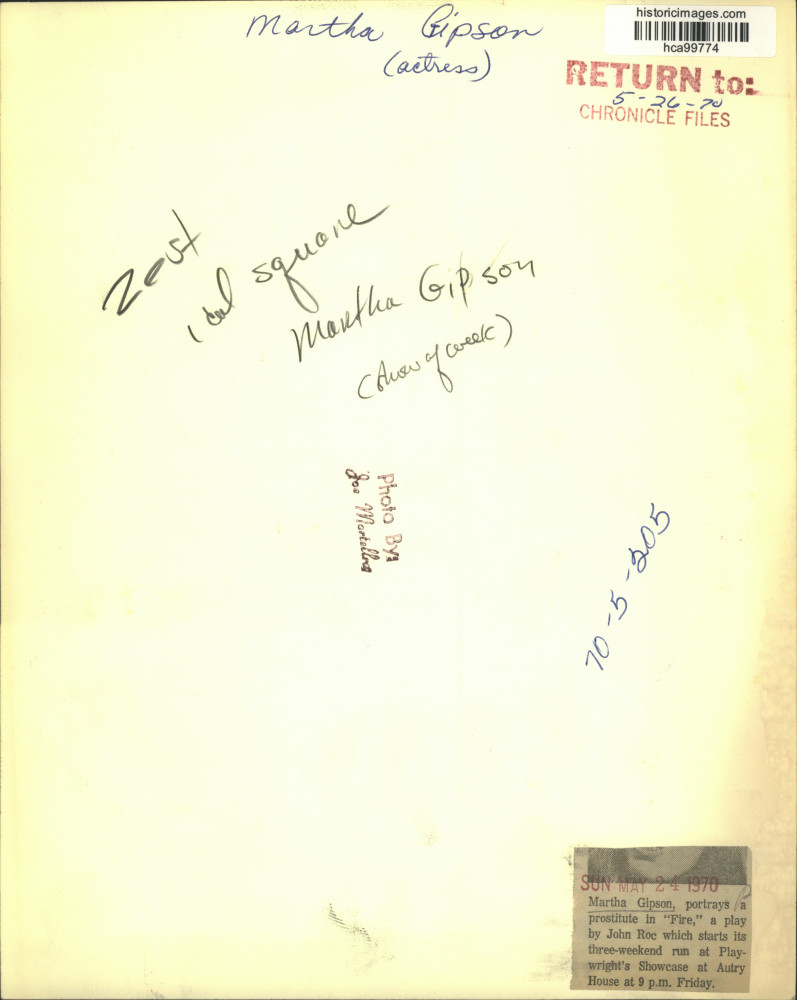 Martha Gipson
(actress)
historicimages.com
hca99774
RETURN to:
5-26-70
CHRONICLE FILES
Zest
1 col square
Martha Gipson
(show of week)
Photo By:
Joe
70-5-205
SUN MAY 24 1970
Martha Gipson, portrays a
prostitute in "Fire," a play
by John Roc which starts its
three-weekend run at Play-
wright's Showcase at Autry
House at 9 p.m. Friday.